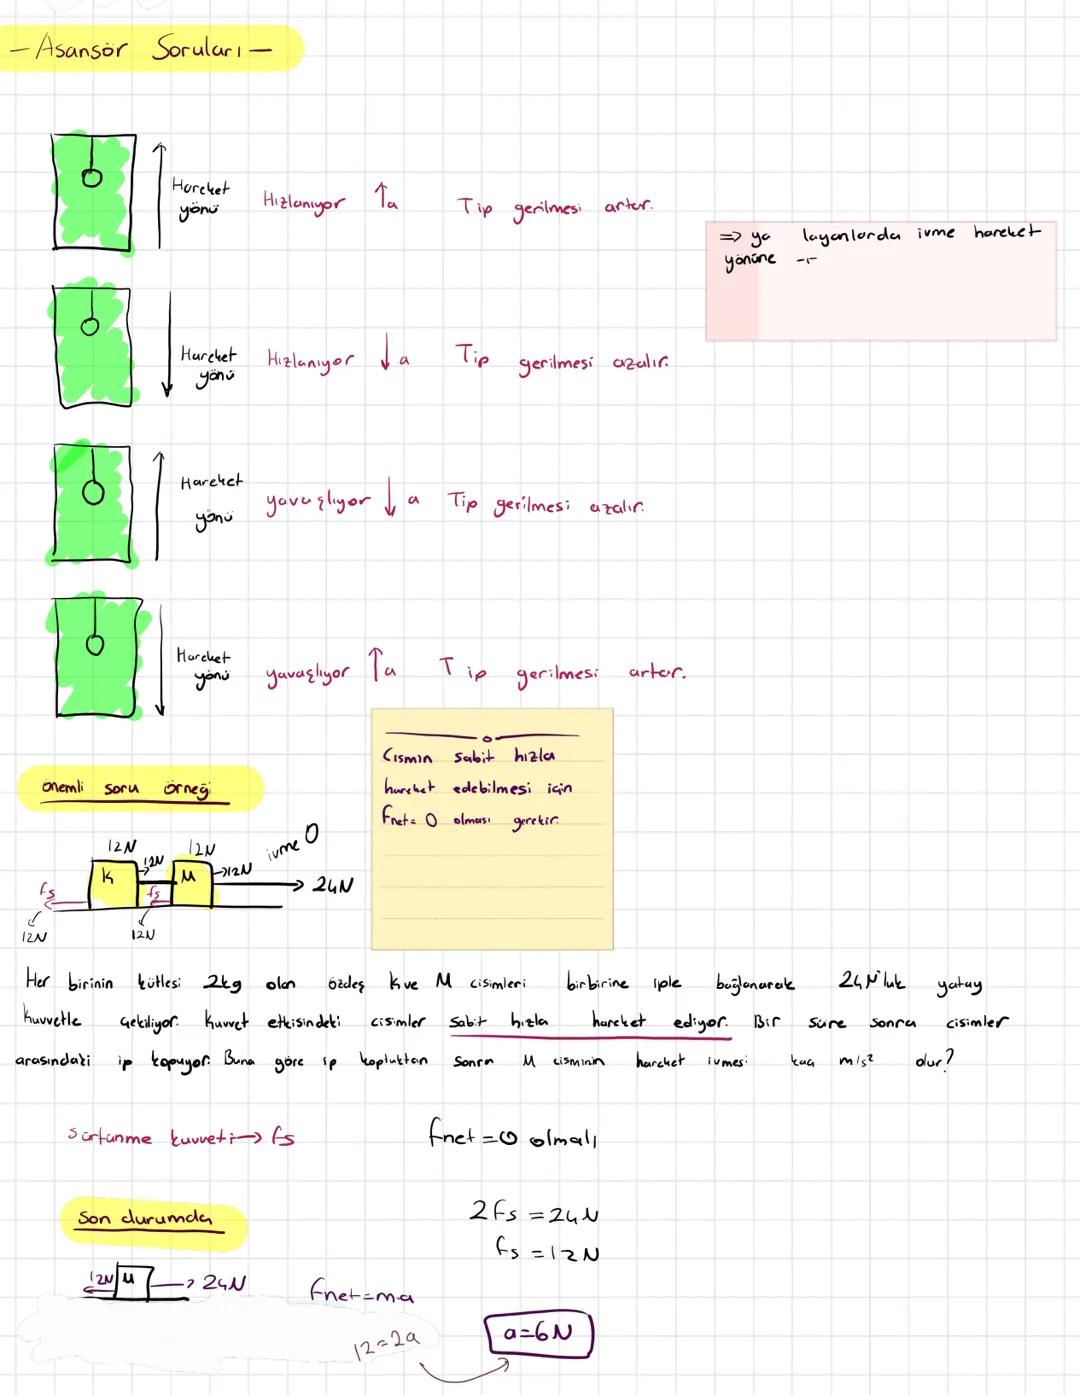 - Asansör Soruları -
Hareket yönü Hızlanıyor ↑a Tip gerilmesi artar.
⇒ ya layanlarda ivme hareket
yönüne
Hareket yönü Hızlanıyor ↓a Tip gerilmesi azalır.
Hareket yönü yavaşlıyor ↓a Tip gerilmesi azalır.
Hareket yönü yavaşlıyor ↑a Tip gerilmesi artar.
Cismin sabit hızla
hareket edebilmesi için
Fnet = 0 olması gerekir.
önemli soru örneği
12N 12N ivme 0
K 12N M →12N → 24N
fs fs
12N 12N
Her birinin kütlesi 2kg olan özdeş K ve M cisimleri birbirine iple bağlanarak 24N'luk yatay
kuvvetle çekiliyor. Kuvvet etkisindeki cisimler sabit hızla hareket ediyor. Bir süre sonra cisimler
arasındaki ip kopuyor. Buna göre ip koptuktan sonra M cisminin hareket ivmesi kaç m/s² olur?
sürtünme kuvveti → fs
fnet = 0 olmalı
2fs = 24N
fs = 12N
Son durumda
12N M → 24N
fnet=m.a
12=2a
a=6N